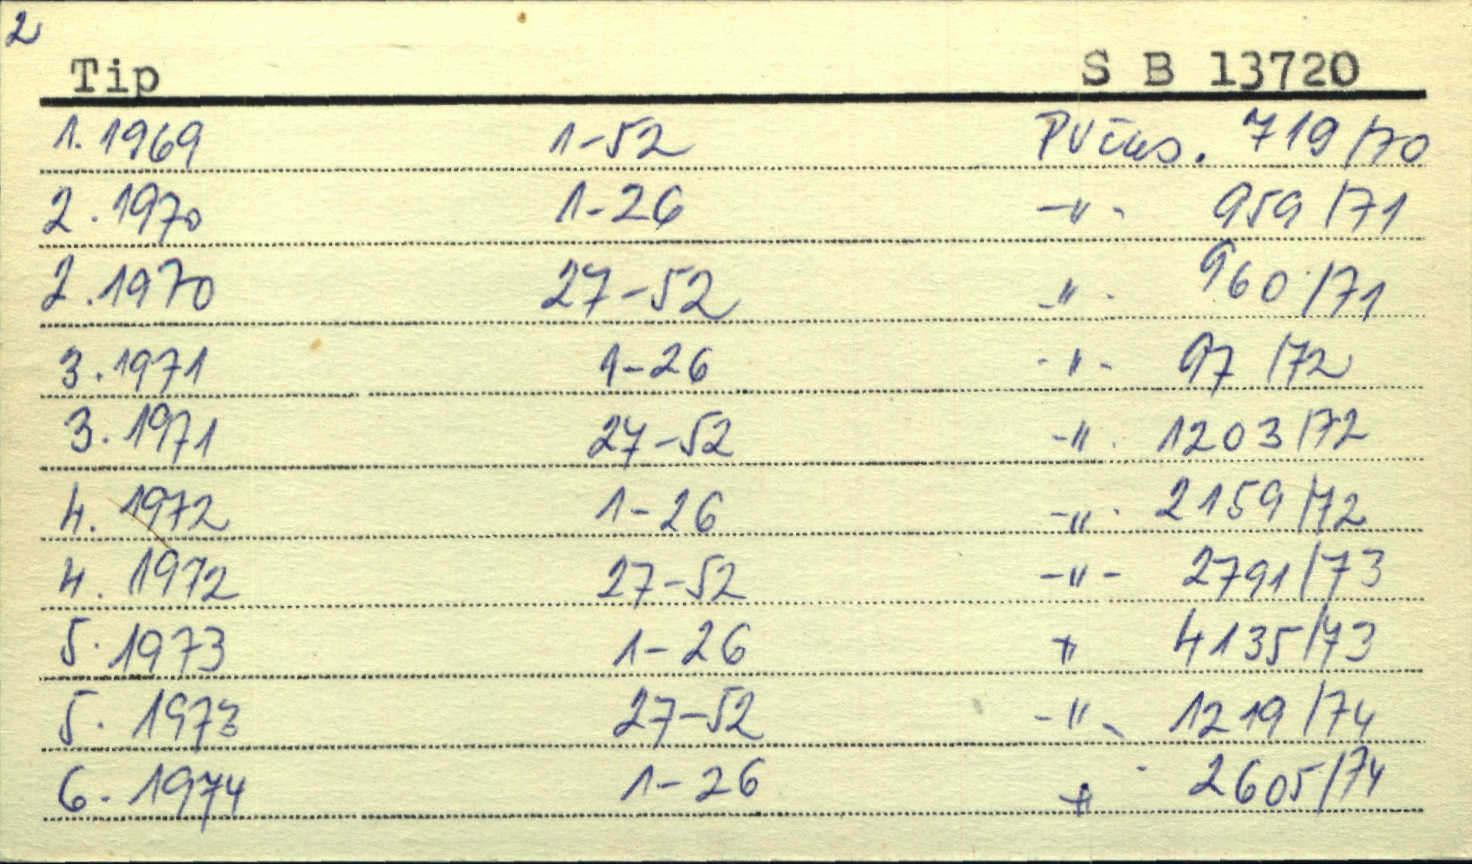 2
Tip S B 13720
1. 1969 1-52 PV čas. 719/70
2. 1970 1-26 -"- 959/71
2. 1970 27-52 -"- 960/71
3. 1971 1-26 -"- 97/72
3. 1971 27-52 -"- 1203/72
4. 1972 1-26 -"- 2159/72
4. 1972 27-52 -"- 2791/73
5. 1973 1-26 -"- 4135/73
5. 1973 27-52 -"- 1219/74
6. 1974 1-26 -"- 2605/74